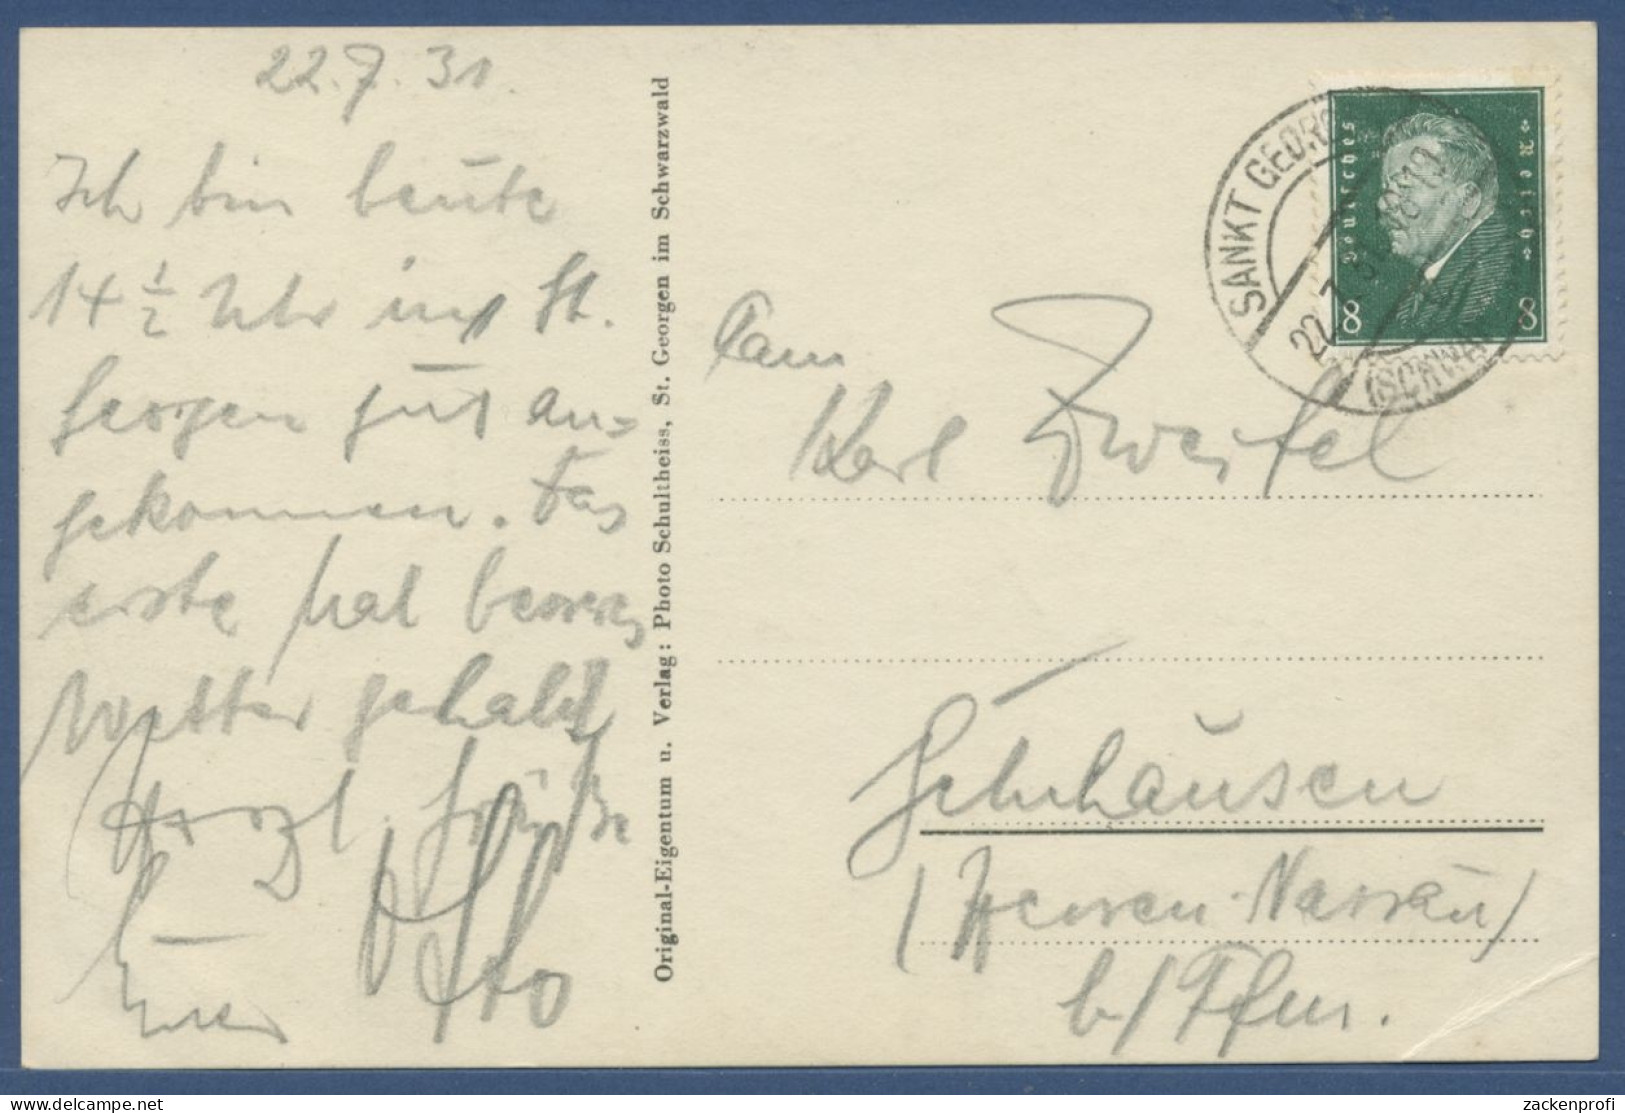 22.7.31.
Ich bin heute
14 1/2 Uhr in St.
Georgen gut an-
gekommen. Das
erste Mal besseres
Wetter gehabt
Herzl. Grüße
Euer Otto
Original-Eigentum u. Verlag: Photo Schultheiss, St. Georgen im Schwarzwald
Fam
Karl Zweifel
Gelnhausen
(Hessen-Nassau)
b/Ffm.
SANKT GEORG
(SCHWA
22. 7. 31. 18-19
Deutsches Reich
8 8
zackenprofi